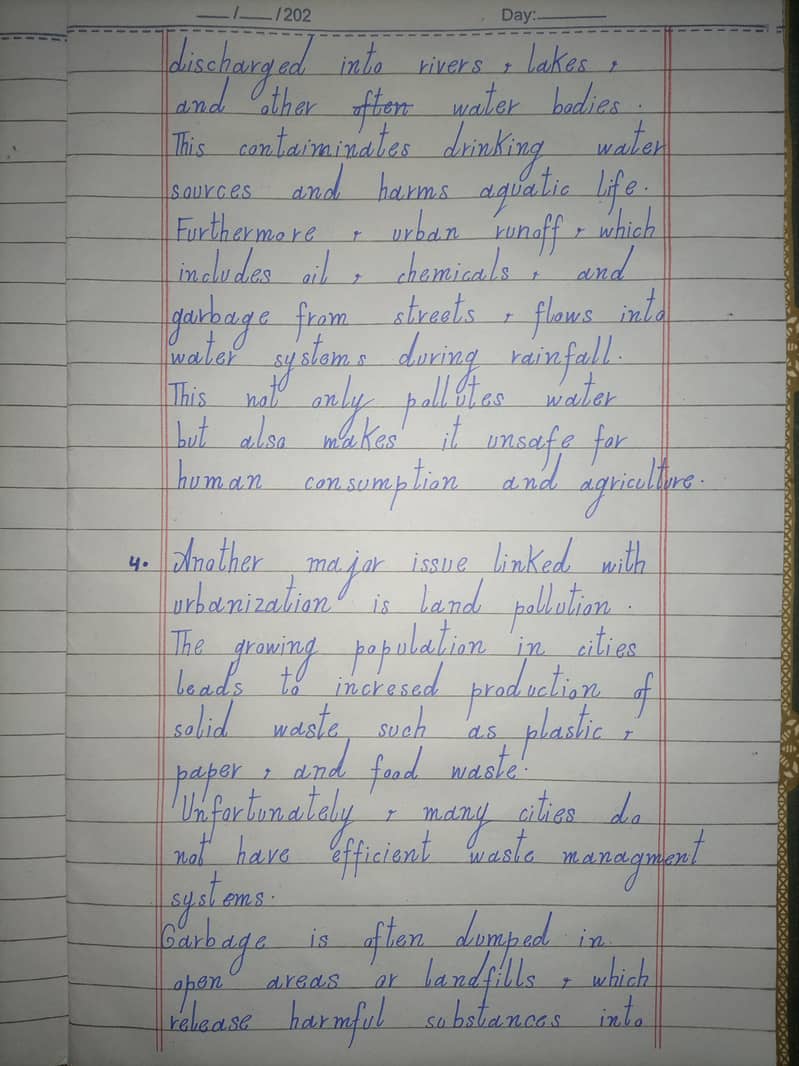 __/__/202 Day:______
discharged into rivers, lakes,
and other often water bodies.
This contaiminates drinking water
sources and harms aquatic life.
Furthermore, urban runoff, which
includes oil, chemicals, and
garbage from streets, flows into
water systems during rainfall.
This not only pollutes water
but also makes it unsafe for
human consumption and agriculture.
4. Another major issue linked with
urbanization is land pollution.
The growing population in cities
leads to incresed production of
solid waste such as plastic,
paper, and food waste.
Unfortunately, many cities do
not have efficient waste managment
systems.
Garbage is often dumped in
open areas or landfills, which
release harmful substances into